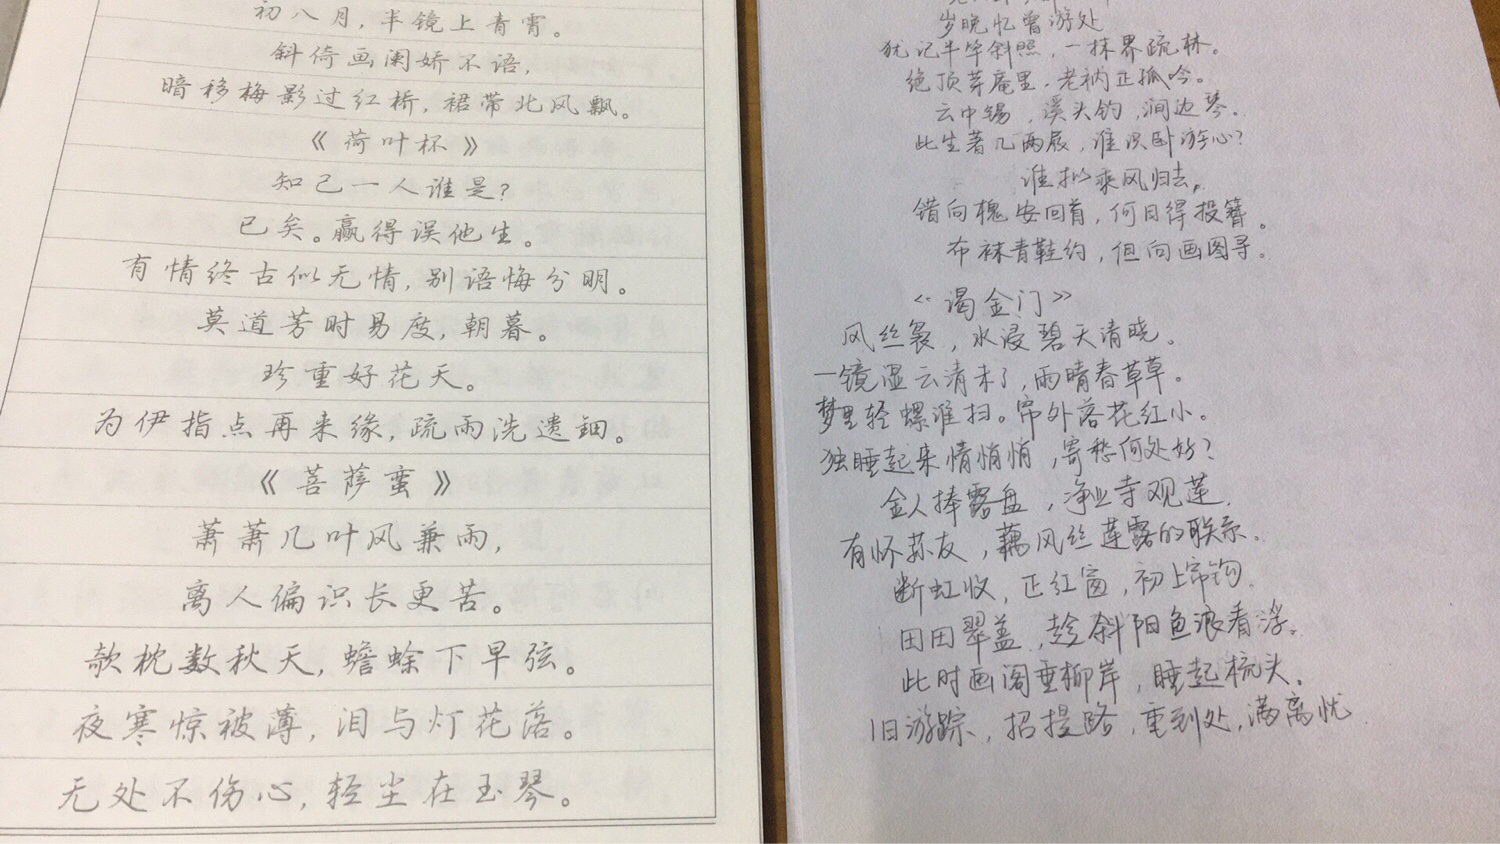 初八月，半镜上青霄。
斜倚画阑娇不语，
暗移梅影过红桥，裙带北风飘。
《荷叶杯》
知己一人谁是？
已矣。赢得误他生。
有情终古似无情，别语悔分明。
莫道芳时易度，朝暮。
珍重好花天。
为伊指点再来缘，疏雨洗遗钿。
《菩萨蛮》
萧萧几叶风兼雨，
离人偏识长更苦。
欹枕数秋天，蟾蜍下早弦。
夜寒惊被薄，泪与灯花落。
无处不伤心，轻尘在玉琴。
岁晚忆曾游处
犹记半竿斜照，一抹界疏林。
绝顶茅庵里，老衲正孤吟。
云中锡，溪头钓，涧边琴。
此生著几两屐，谁识卧游心？
谁拟乘风归去，
错向槐安回首，何日得投簪。
布袜青鞋约，但向画图寻。
《谒金门》
风丝袅，水浸碧天清晓。
一镜湿云清未了，雨晴春草草。
梦里轻螺谁扫。帘外落花红小。
独睡起来情悄悄，寄愁何处好？
金人捧露盘，净业寺观莲，
有怀荪友，藕风丝莲露的联系。
断虹收，正红窗，初上帘钩，
田田翠盖，趁斜阳鱼浪看浮。
此时画阁垂柳岸，睡起梳头。
旧游踪，招提路，重到处，满离忧